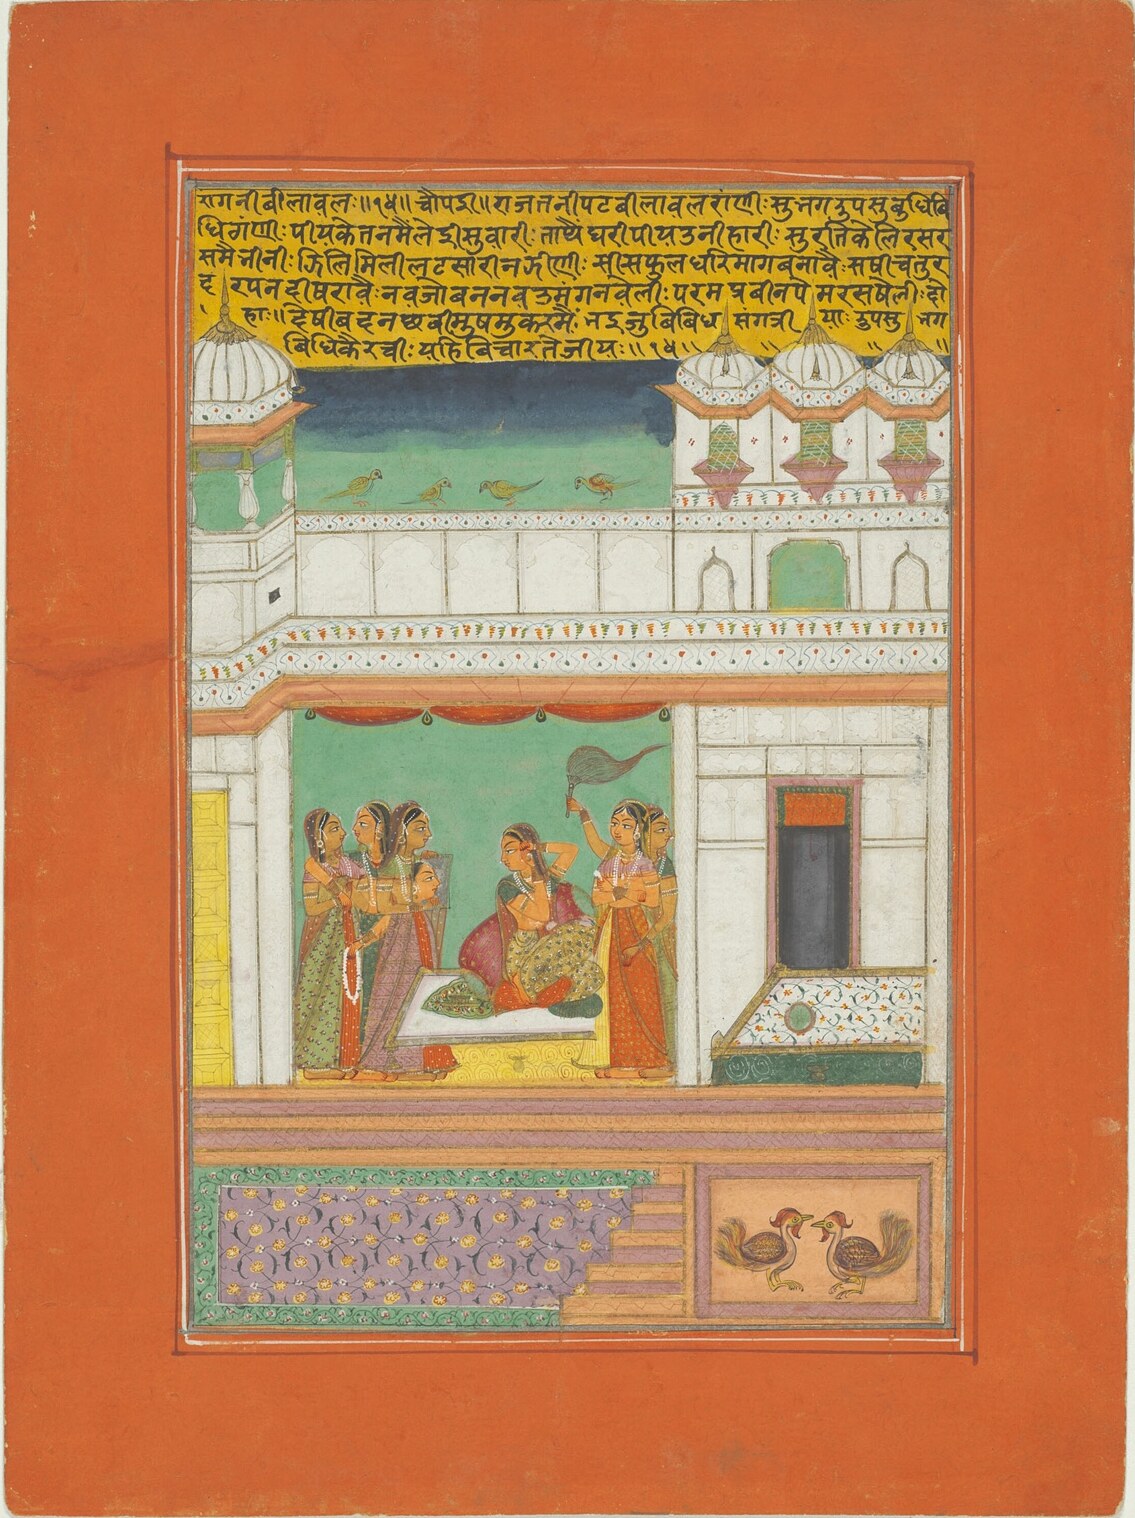 रागनीबीलावलः॥१५॥ चौपइ॥ राजतनीपटबीलावलरांणीः सुभगरुपसुबुधिबि
धिगंणीः पीयकेतनमैंलेइसुवारीः ताथैघरीपीयउनीहारीः सुरतिकेलिरसर
समैनीनीः झिलिमिलीलटसारीनझीणीः सीसफुलधरिमागबनावैः सषीचतुर
दरपनदीषरावैः नवजोबननवउमंगनवेलीः परमप्रबीनपेमरसषेलीः दो
हाः॥ देषीबदनछबीमुषमुकरमैं भइजुबिबिध संगत्री याः रुपसुभग
बिधिकैरचीः यहिबिचारतैजीयः॥१५॥